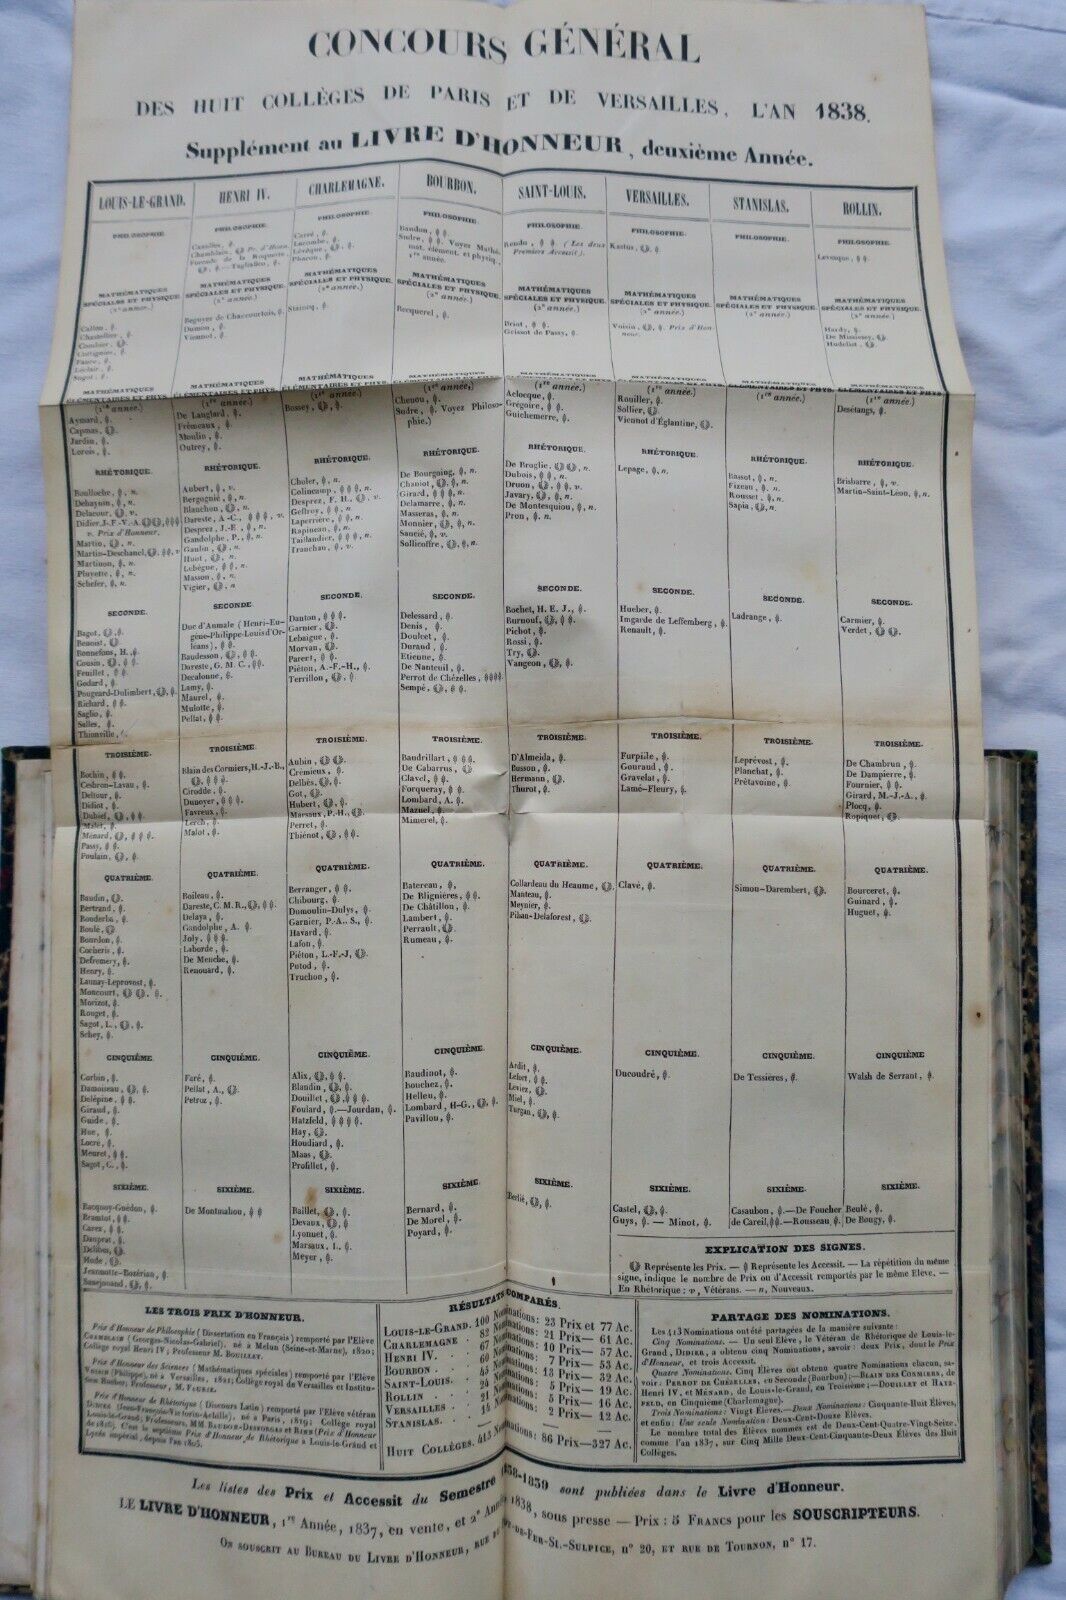 CONCOURS GÉNÉRAL
DES HUIT COLLÈGES DE PARIS ET DE VERSAILLES, L'AN 1838.
Supplément au LIVRE D'HONNEUR, deuxième Année.
LOUIS-LE-GRAND.
PHILOSOPHIE.
MATHÉMATIQUES
SPÉCIALES ET PHYSIQUE
(2e année.)
Callou,
Chastellier,
Combier,
Cottignies,
Faure,
Léclair,
Sagot,
MATHÉMATIQUES
ÉLÉMENTAIRES ET PHYS.
(1re année.)
Aymard,
Capmas,
Jardin,
Lerois,
RHÉTORIQUE.
Boulloche, n.
Dehaynin, n.
Delacour, v.
Didier, J.-F.-V.-A.
v. Prix d'Honneur.
Martin, n.
Martin-Deschanel, v.
Martinon, n.
Pluyette, n.
Schefer, n.
SECONDE.
Bagot,
Benoist,
Bonnefons, H.
Cousin,
Feuillet,
Godard,
Pougeard-Dulimbert,
Richard,
Saglio,
Salles,
Thionville,
TROISIÈME.
Bochin,
Cesbron-Lavau,
Deltour,
Didiot,
Dubiel,
Malet,
Ménard,
Passy,
Poulain,
QUATRIÈME.
Baudin,
Bertrand,
Bonderba,
Boulé,
Bourdon,
Cocheris,
Defremery,
Henry,
Launay-Leprovost,
Moncourt,
Morizot,
Rouget,
Sagot, L.,
Schey,
CINQUIÈME.
Corbin,
Damoiseau,
Delépine,
Giraud,
Guide,
Hue,
Locré,
Meuret,
Sagot, C.,
SIXIÈME.
Bacquoy-Guédon,
Bramtot,
Carez,
Dauprat,
Délibes,
Hude,
Jeannotte-Bozérian,
Sanejouand,
HENRI IV.
PHILOSOPHIE.
Cazalles,
Chamblain, Pr. d'Honn.
Forcade de la Roquette,
—Tagliafico,
MATHÉMATIQUES
SPÉCIALES ET PHYSIQUE
(2e année.)
Beguyer de Chaccourtois,
Dumon,
Viennot,
MATHÉMATIQUES
ÉLÉMENTAIRES ET PHYS.
(1re année.)
De Langlard,
Frémeaux,
Moulin,
Outrey,
RHÉTORIQUE.
Aubert, v.
Bergognié, n.
Blanchon, n.
Dareste, A.-C., v.
Desprez, J.-E., n.
Gandolphe, P., n.
Gaulin, n.
Huot, n.
Lebègue, n.
Masson, n.
Vigier, n.
SECONDE.
Duc d'Aumale (Henri-Eugène-Philippe-Louis d'Orléans),
Baudesson,
Dareste, G. M. C.,
Decalonne,
Lamy,
Maurel,
Mulotte,
Pellat,
TROISIÈME.
Blain des Cormiers, H.-J.-B.,
Cirodde,
Dunoyer,
Favreux,
Lerch,
Malot,
QUATRIÈME.
Boileau,
Dareste, C. M. R.,
Delaya,
Gandolphe, A.
Joly,
Laborde,
De Menche,
Renouard,
CINQUIÈME.
Faré,
Pellat, A.,
Petroz,
SIXIÈME.
De Montmahou,
CHARLEMAGNE.
PHILOSOPHIE.
Carré,
Lacombe,
Lévêque,
Phaeon,
MATHÉMATIQUES
SPÉCIALES ET PHYSIQUE
(2e année.)
Stamicq,
MATHÉMATIQUES
ÉLÉMENTAIRES ET PHYS.
(1re année.)
Bossey,
RHÉTORIQUE.
Choler, n.
Colincamp, n.
Desprez, F. H., v.
Geffroy, n.
Laperrière, n.
Rapineau, n.
Taillandier, n.
Tranchau, v.
SECONDE.
Danton,
Garnier,
Lebaigue,
Morvan,
Parent,
Piéton, A.-F.-H.,
Terrillon,
TROISIÈME.
Aubin,
Crémieux,
Delbès,
Got,
Hubert,
Marsaux, P.-H.,
Perret,
Thiénot,
QUATRIÈME.
Berranger,
Chibourg,
Dumoulin-Dulys,
Garnier, P.-A.. S.,
Havard,
Lafon,
Piéton, L.-F.-J,
Potod,
Truchon,
CINQUIÈME.
Alix,
Blandin,
Douillet,
Foulard, —Jourdan,
Hatzfeld,
Hay,
Houdiard,
Maas,
Profillet,
SIXIÈME.
Baillet,
Devaux,
Lyonnet,
Marsaux, L.,
Meyer,
BOURBON.
PHILOSOPHIE.
Baudon,
Sudre, Voyez Mathémat. élément. et physiq. 1re année.
MATHÉMATIQUES
SPÉCIALES ET PHYSIQUE
(2e année.)
Becquerel,
(1re année.)
Chenou,
Sudre, Voyez Philosophie.)
RHÉTORIQUE.
De Bourgoing, n.
Chaniot, n.
Girard, n.
Delamarre, n.
Masseras, n.
Monnier, n.
Sancié, v.
Sollicoffre, n.
SECONDE.
Delessard,
Denis,
Doulcet,
Duraud,
Etienne,
De Nanteuil,
Perrot de Chézelles,
Sempé,
TROISIÈME.
Baudrillart,
De Cabarrus,
Clavel,
Forqueray,
Lombard, A.
Mazuel,
Mimerel,
QUATRIÈME.
Batereau,
De Blignières,
De Châtillon,
Lambert,
Perrault,
Rumeau,
CINQUIÈME.
Baudinot,
Bouchez,
Helleu,
Lombard, H-G.,
Pavillou,
SIXIÈME.
Bernard,
De Morel,
Poyard,
SAINT-LOUIS.
PHILOSOPHIE.
Rendu, (Les deux Premiers Accessit).
MATHÉMATIQUES
SPÉCIALES ET PHYSIQUE
(2e année.)
Briot,
Geissot de Passy,
(1re année.)
Aclocque,
Grégoire,
Guichemerre,
RHÉTORIQUE.
De Broglie, n.
Dubois, n.
Druon, v.
Javary, n.
De Montesquiou, n.
Pron, n.
SECONDE.
Bochet, H. E. J.,
Burnouf,
Pichot,
Rossi,
Try,
Vangeon,
TROISIÈME.
D'Almeida,
Busson,
Hermann,
Thurot,
QUATRIÈME.
Collardeau du Heaume,
Manteau,
Meynier,
Pihan-Delaforest,
CINQUIÈME.
Ardit,
Lefort,
Leviez,
Miel,
Turgan,
SIXIÈME.
Berlié,
VERSAILLES.
PHILOSOPHIE.
Kastus,
MATHÉMATIQUES
SPÉCIALES ET PHYSIQUE
(2e année.)
Voisin, Prix d'Honneur.
(1re année.)
Rouiller,
Sollier,
Viennot d'Églantine,
RHÉTORIQUE.
Lepage, n.
SECONDE.
Hueber,
Imgarde de Leffemberg,
Renault,
TROISIÈME.
Furpille,
Gouraud,
Gravelat,
Lamé-Fleury,
QUATRIÈME.
Clavé,
CINQUIÈME.
Ducoudré,
SIXIÈME.
Castel,
Guys, — Minot,
STANISLAS.
PHILOSOPHIE.
MATHÉMATIQUES
SPÉCIALES ET PHYSIQUE
(2e année.)
MATHÉMATIQUES
ÉLÉMENTAIRES ET PHYS.
(1re année.)
RHÉTORIQUE.
Bassot, n.
Fizeau, n.
Rousset, n.
Sapia, n.
SECONDE.
Ladrange,
TROISIÈME.
Leprévost,
Planchat,
Prêtavoine,
QUATRIÈME.
Simon-Darembert,
CINQUIÈME.
De Tessières,
SIXIÈME.
Casaubon, —De Foucher
de Careil, —Rousseau,
ROLLIN.
PHILOSOPHIE.
Levesque,
MATHÉMATIQUES
SPÉCIALES ET PHYSIQUE
(2e année.)
Hardy,
De Missiessy,
Hudelist,
MATHÉMATIQUES
ÉLÉMENTAIRES ET PHYS.
(1re année.)
Desétangs,
RHÉTORIQUE.
Brisbarre, v.
Martin-Saint-Léon, n.
SECONDE.
Carmier,
Verdet
TROISIÈME.
De Chambrun,
De Dampierre,
Fournier,
Girard, M.-J.-A.,
Plocq,
Ropiquet,
QUATRIÈME.
Bourceret,
Guinard,
Huguet,
CINQUIÈME
Walsh de Serrant,
SIXIÈME.
Beulé,
De Bougy,
EXPLICATION DES SIGNES.
Représente les Prix. — Représente les Accessit. — La répétition du même
signe, indique le nombre de Prix ou d'Accessit remportés par le même Elève. —
En Rhétorique: v, Vétérans. — n, Nouveaux.
LES TROIS PRIX D'HONNEUR.
Prix d'Honneur de Philosophie (Dissertation en Français) remporté par l'Elève
CHAMBLAIN (Georges-Nicolas-Gabriel), né à Melun (Seine-et-Marne), 1820;
Collège royal Henri IV; Professeur M. BOUILLET.
Prix d'Honneur des Sciences (Mathématiques spéciales) remporté par l'Elève
VOISIN (Philippe), né à Versailles, 1821; Collège royal de Versailles et Institution
Professeur, M. FURIE.
Prix d'Honneur de Rhétorique (Discours Latin) remporté par l'Elève vétéran
DIDIER (Jean-François-Victorin-Achille), né à Paris, 1819; Collège royal
Louis-le-Grand; Professeurs, MM. BAUDON-DESFORGES et RINN (Prix d'Honneur
de 1816). C'est le septième Prix d'Honneur de Rhétorique à Louis-le-Grand et
Lycée impérial, depuis l'an 1805.
RÉSULTATS COMPARÉS.
LOUIS-LE-GRAND. 100 Nominations: 23 Prix et 77 Ac.
CHARLEMAGNE . 82 Nominations: 21 Prix— 61 Ac.
HENRI IV. . . 67 Nominations: 10 Prix— 57 Ac.
BOURBON . . . 60 Nominations: 7 Prix— 53 Ac.
SAINT-LOUIS. . 45 Nominations: 13 Prix— 32 Ac.
ROLLIN . . . 24 Nominations: 5 Prix— 19 Ac.
VERSAILLES . . 21 Nominations: 5 Prix— 16 Ac.
STANISLAS. . . 14 Nominations: 2 Prix— 12 Ac.
HUIT COLLÈGES. 413 Nominations: 86 Prix—327 Ac.
PARTAGE DES NOMINATIONS.
Les 413 Nominations ont été partagées de la manière suivante:
Cinq Nominations. — Un seul Elève, le Vétéran de Rhétorique de Louis-le-
Grand, DIDIER, a obtenu cinq Nominations, savoir: deux Prix, dont le Prix
d'Honneur, et trois Accessit.
Quatre Nominations. Cinq Élèves ont obtenu quatre Nominations chacun, sa-
voir: PERROT DE CHÉZELLES, en Seconde (Bourbon);—BLAIN DES CORMIERS, de
Henri IV, et MÉNARD, de Louis-le-Grand, en Troisième;—DOUILLET et HATZ-
FELD, en Cinquième (Charlemagne).
Trois Nominations: Vingt Elèves.— Deux Nominations: Cinquante-Huit Elèves,
et enfin: Une seule Nomination: Deux-Cent-Douze Elèves.
Le nombre total des Élèves nommés est de Deux-Cent-Quatre-Vingt-Seize,
comme l'an 1837, sur Cinq Mille Deux-Cent-Cinquante-Deux Élèves des Huit
Collèges.
Les listes des Prix et Accessit du Semestre 1838-1839 sont publiées dans le Livre d'Honneur.
LE LIVRE D'HONNEUR, 1re Année, 1837, en vente, et 2e Année 1838, sous presse — Prix: 5 FRANCS pour les SOUSCRIPTEURS.
ON SOUSCRIT AU BUREAU DU LIVRE D'HONNEUR, RUE DU POT-DE-FER-ST.-SULPICE, n° 20, ET RUE DE TOURNON, n° 17.